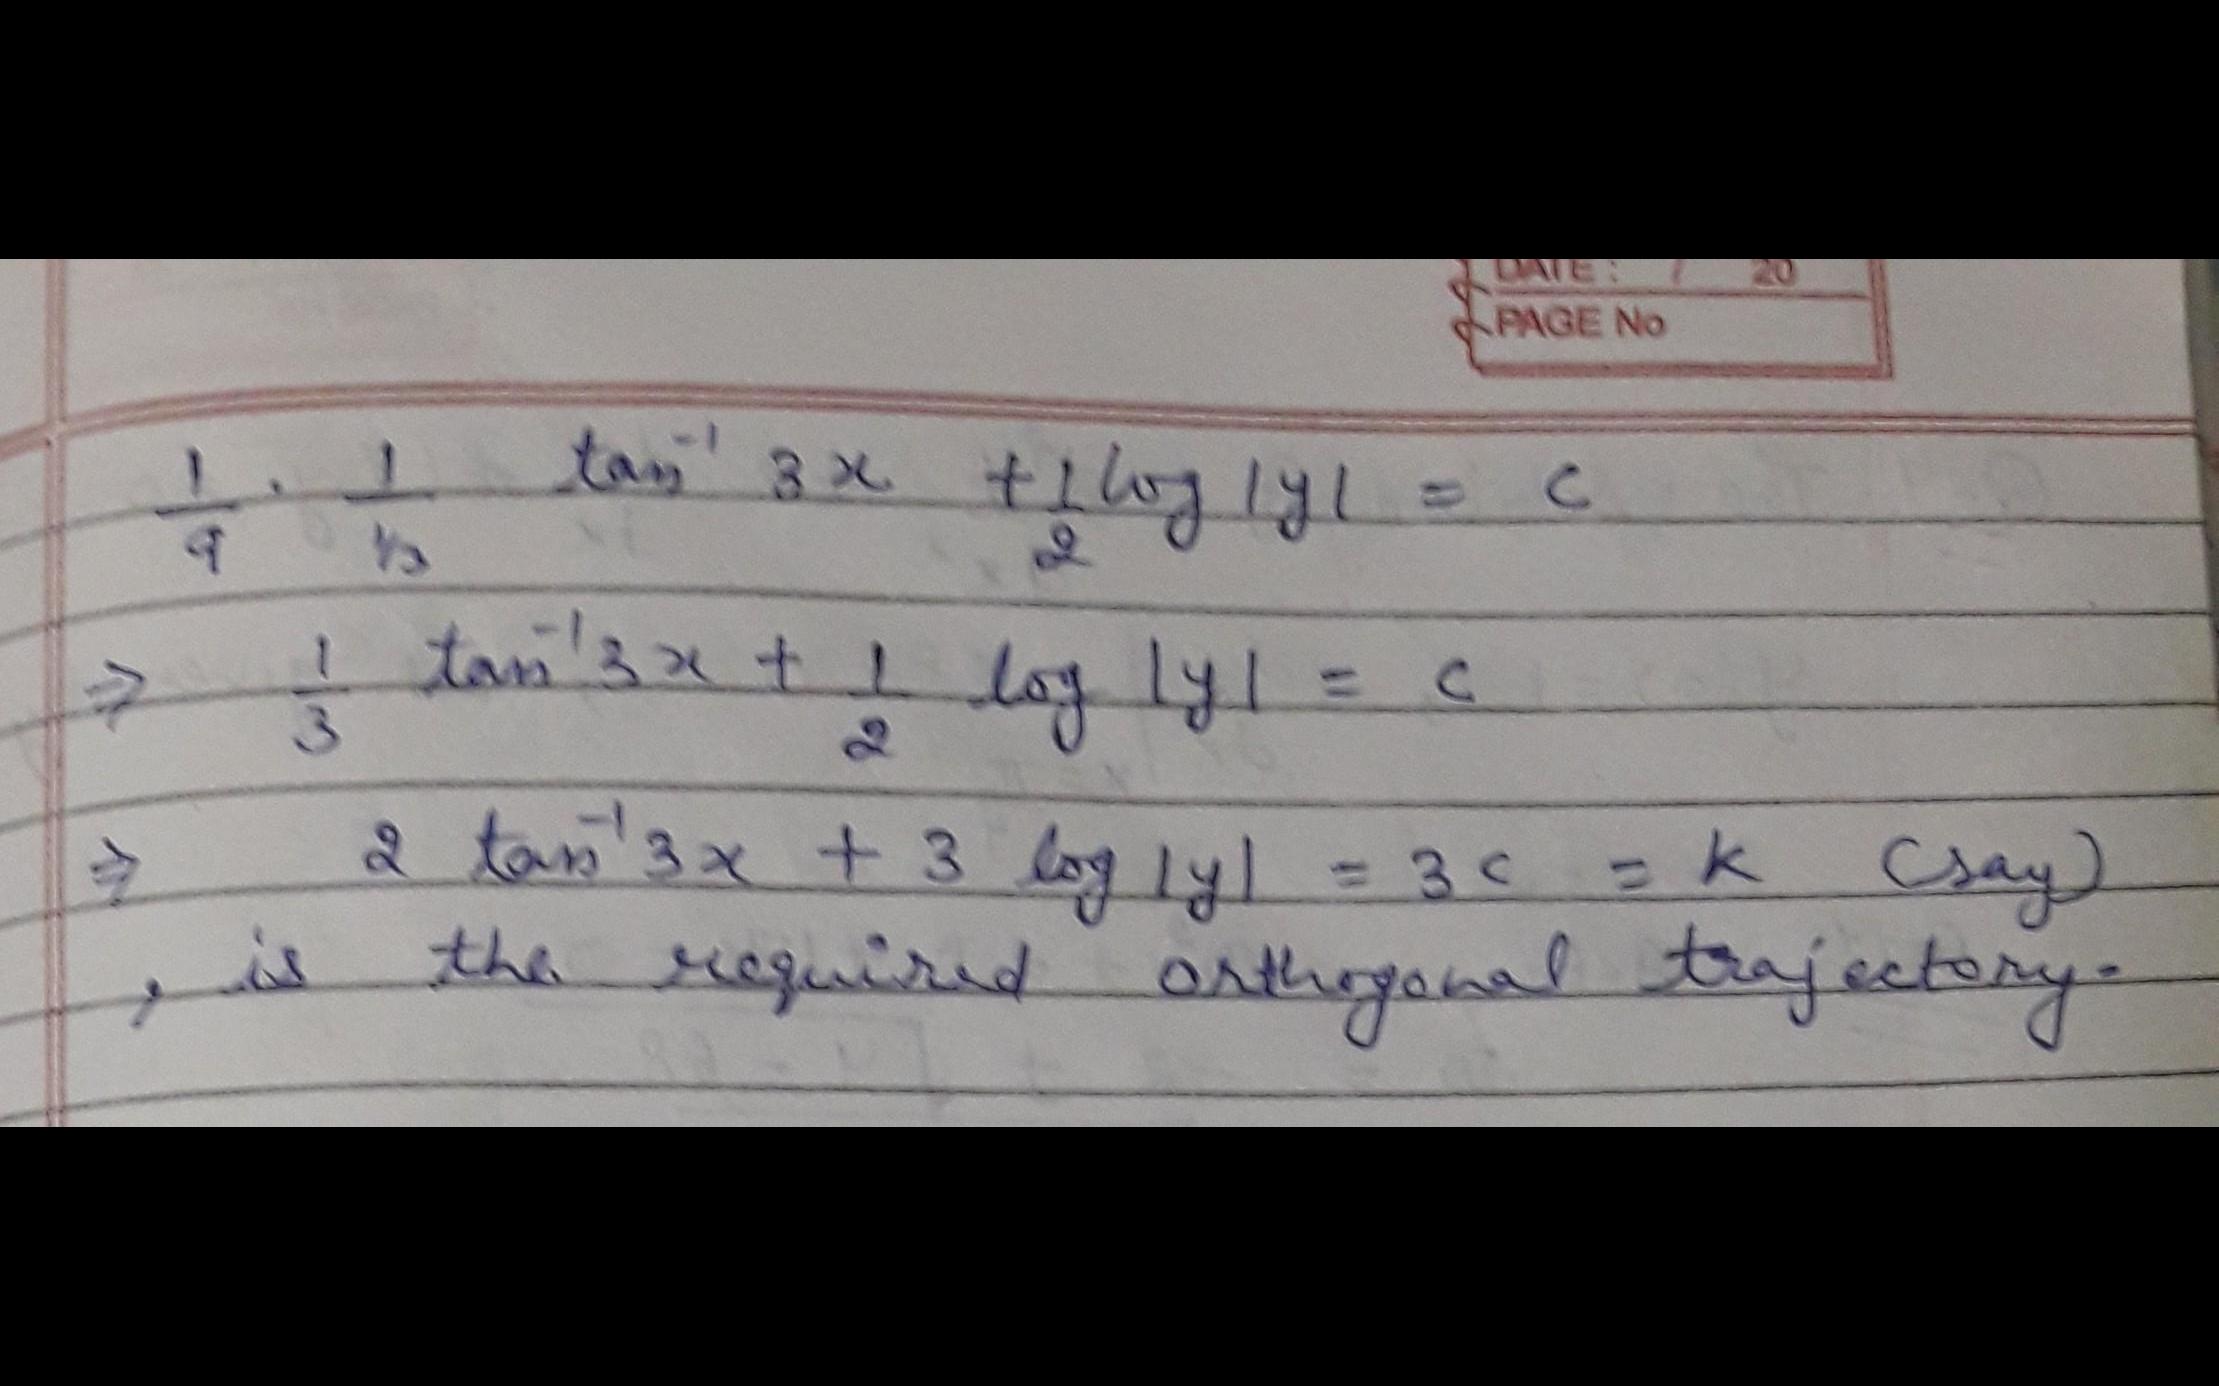 DATE: / 20
PAGE No
1/9 · 1/(1/3) tan⁻¹ 3x + 1/2 log |y| = c
⇒ 1/3 tan⁻¹ 3x + 1/2 log |y| = c
⇒ 2 tan⁻¹ 3x + 3 log |y| = 3c = k (say)
, is the required orthogonal trajectory.